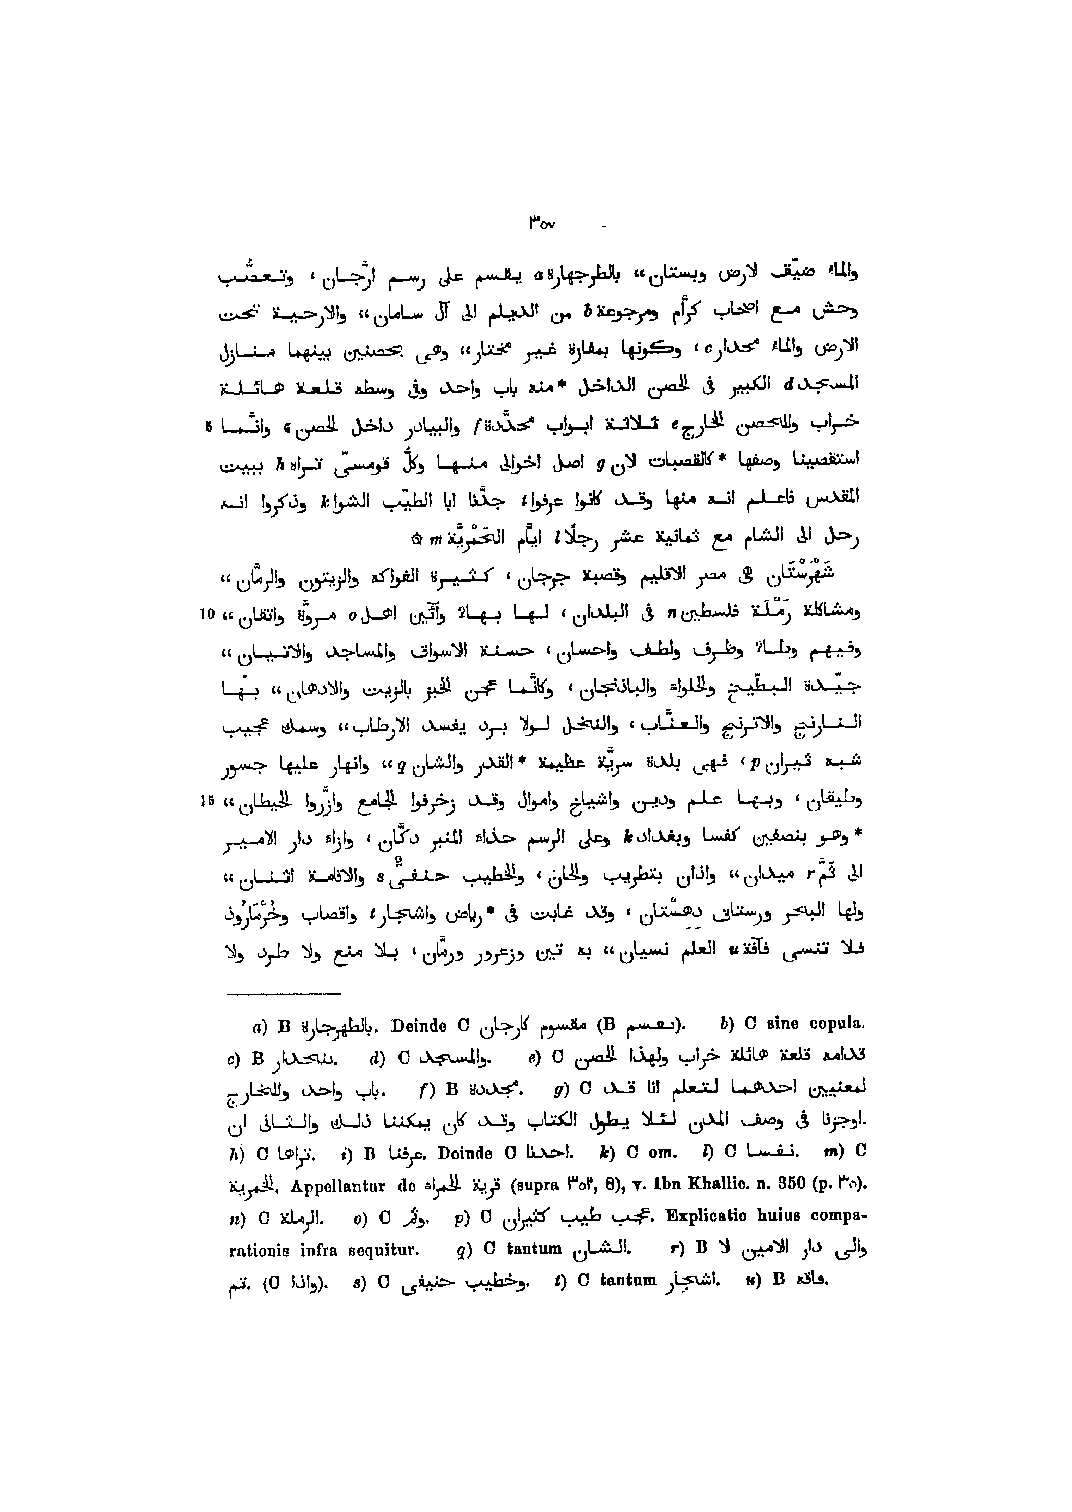 ٣٥٧
والماء ضيّق لارض وبستان" بالطرجهارة a يقسم على رسم ارَّجان، وتعصُّب
وحش مع اصحاب كرَّام ومرجوعة b من الديلم الى آل سامان" والارحية تحت
الارض والماء محدار c، وكونها بمفازة غير مختار" وهى بحصنين بينهما منازل
المسجد d الكبير فى الحصن الداخل *منه باب واحد وفى وسطه قلعة هائلة
خراب وللحصن الخارج e ثلاثة ابواب محدَّدة f والبيادر داخل الحصن e وانَّما 5
استقصينا وصفها *كالقصبات لان g اصل اخوالى منها وكلُّ قومسىّ تراه h ببيت
المقدس فاعلم انه منها وقد كانوا عرفوا i جدَّنا ابا الطيّب الشواء k وذكروا انه
رحل الى الشام مع ثمانية عشر رجلًا l ايَّام الخَمْريَّة m ✩
شَهْرَسْتَان هى مصر الاقليم وقصبة جرجان، كثيرة الفواكه والزيتون والرمَّان"
ومشاكلة رَمْلَة فلسطين n فى البلدان، لها بهاءٌ وآئين اهل o مروَّة واتقان" 10
وفيهم وطاءٌ وظرف ولطف واحسان، حسنة الاسواق والمساجد والاتيان"
جيّدة البطّيخ والحلواء والباذنجان، وكانَّما عجن الخبز بالزيت والادهان" بهّا
النارنج والاترنج والعنَّاب، والنخل لولا برد يفسد الارطاب" وسمك عجيب
شبه ثيران p، فهى بلدة سريَّة عظيمة *القدر والشان q" وانهار عليها جسور
وطيقان، وبها علم ودين واشياخ واموال وقد زخرفوا الجامع وازَّروا الحيطان" 15
*وهو بنصفين كفسا وبغداد k وعلى الرسم حذاء المنبر دكَّان، وازاء دار الامير
الى ثَمَّ r ميدان" واذان بتطريب والحان، والخطيب حنفىٌّ s والاقامة اثنان"
ولها البحر ورستاق دهِسْتان، وقد غابت فى *رياض واشجار t واقصاب وخُرْمَارُوذ
فلا تنسى فآفة u العلم نسيان" به تين وزعرور ورمَّان، بلا منع ولا طرد ولا
a) B بالطهرجارة. Deinde C مقسوم كارجان (B بعسم). b) C sine copula.
c) B ىىحدار. d) C والمسجد. e) C قدامه قلعة هائلة خراب ولهذا الحصن
باب واحد وللخارج. f) B مجددة. g) C لمعنيين احدهما لتعلم انا قد
اوجزنا فى وصف المدن لئلا يطول الكتاب وقد كان يمكننا ذلك والثانى ان.
h) C تراها. i) B عرفنا. Deinde C احدنا. k) C om. l) C نفسا. m) C
الخمرية. Appellantur de قرية الحمراء (supra ٣٥٣, 8), v. Ibn Khallic. n. 350 (p. ٣٥).
n) C الرملة. o) C وثر. p) C عجب طيب كثيران. Explicatio huius compa-
rationis infra sequitur. q) C tantum الشان. r) B والى دار الامين لا
ثم. (C واذا). s) C وخطيب حنيفى. t) C tantum اشجار. u) B فانه.